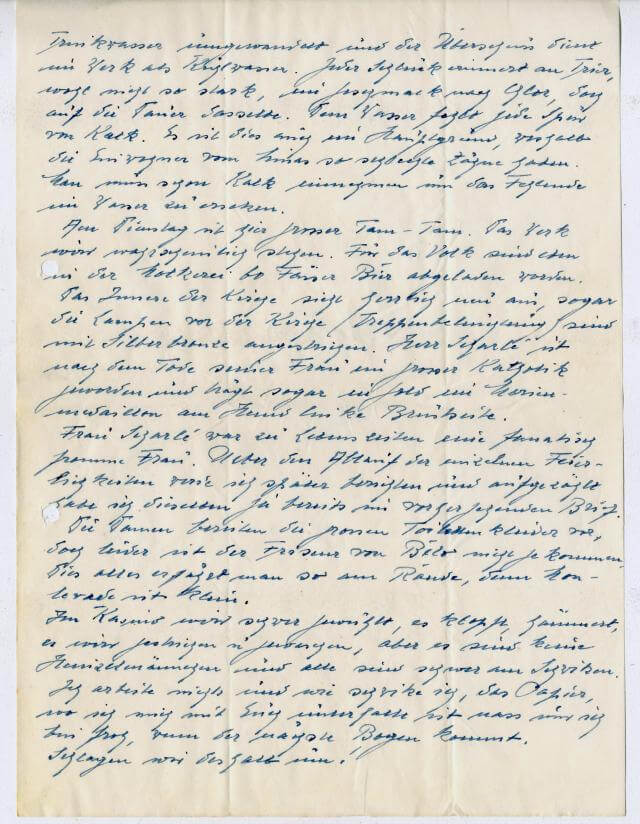 Trinkwasser umgewandelt und der Überschuss dient
im Werk als Kühlwasser. Jeder Schluck erinnert an Trier,
wohl nicht so stark, ein Geschmack nach Chlor, doch
auf die Dauer dasselbe. Dem Wasser fehlt jede Spur
von Kalk. Es ist dies auch ein Hauptgrund, weshalb
die Einwohner von Minas so schlechte Zähne haben.
Man muss schon Kalk einnehmen um das Fehlende
im Wasser zu ersetzen.
Am Dienstag ist hier grosser Tam-Tam. Das Werk
wird wahrscheinlich stehen. Für das Volk sind eben
in der 60 Fässer Bier abgeladen worden.
Das Innere der Kirche sieht herrlich neu aus, sogar
die Lampen vor der Kirche (Treppenbeleuchtung) sind
mit Silberbronze angestrichen. Herr Scharlé ist
nach dem Tode seiner Frau ein grosser Katholik
geworden und trägt sogar in Gold ein Marien-
medaillon am Hemd linke Brustseite.
Frau Scharlé war zu Lebenszeiten eine fanatisch
fromme Frau. Ueber den Ablauf der einzelnen Feier-
lichkeiten werde ich später berichten und aufgezählt
habe ich dieselben ja bereits im vorhergehenden Brief.
Die Damen bereiten die grossen Toilettenkleider vor,
doch leider ist der Friseur von Belo nicht gekommen.
Dies alles erfährt man so am Rande, denn Mon-
levade ist klein.
Im Kasino wird schwer gewühlt, es klopft, hämmert,
es wird gestrichen u. gewaschen, aber es sind keine
Heinzelmännchen und alle sind schwer am Schwitzen.
Ich arbeite nichts und wie schwitze ich, das Papier,
wo ich mich mit Euch unterhalte ist nass und ich
bin froh, wenn der nächste Bogen kommt.
Schlagen wir deshalb um!